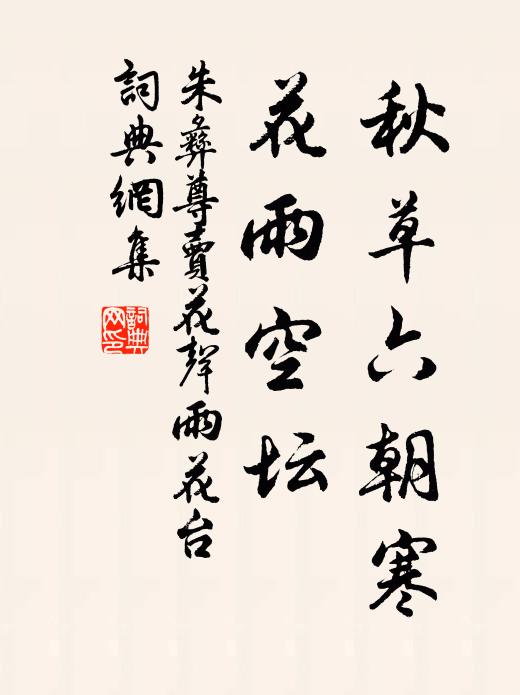 秋草六朝寒
花雨空坛
朱彝尊賣花聲雨花台
詞典網集
詞典网印